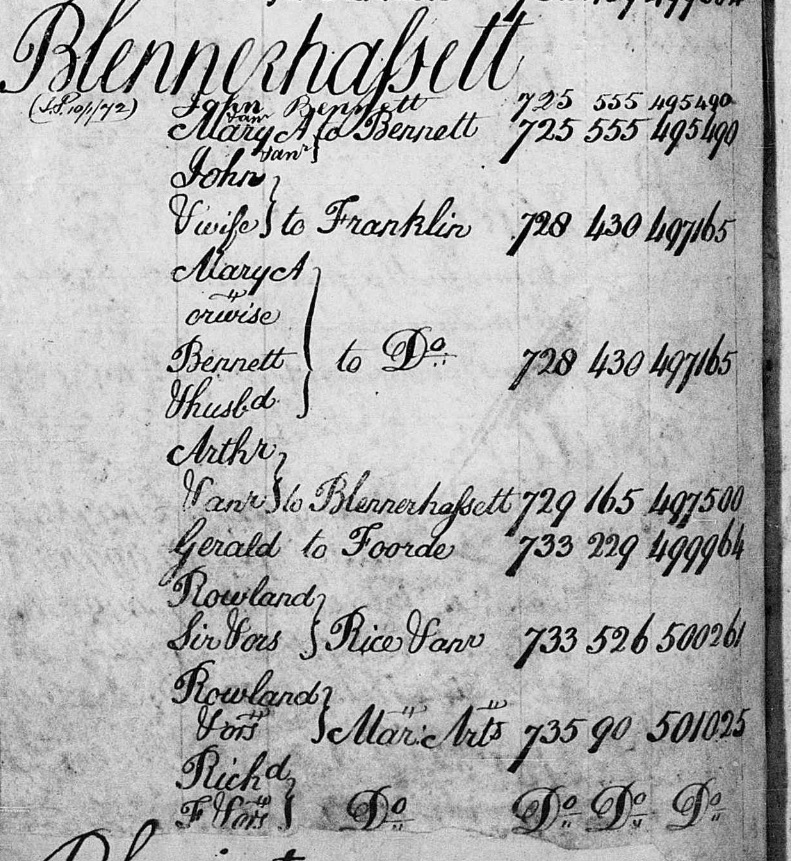 Blennerhassett
John Bennett 725 555 495490
Mary A &anr to Bennett 725 555 495490
John &anr
&wife to Franklin 728 430 497165
Mary A
orwise
Bennett to Do 728 430 497165
&husbd
Arthr
&anr to Blennerhassett 729 165 497500
Gerald to Foorde 733 229 499964
Rowland
Sir &ors Rice &anr 733 526 500261
Rowland
&ors Mar: Arts 735 90 501025
Richd
F &ors Do Do Do Do